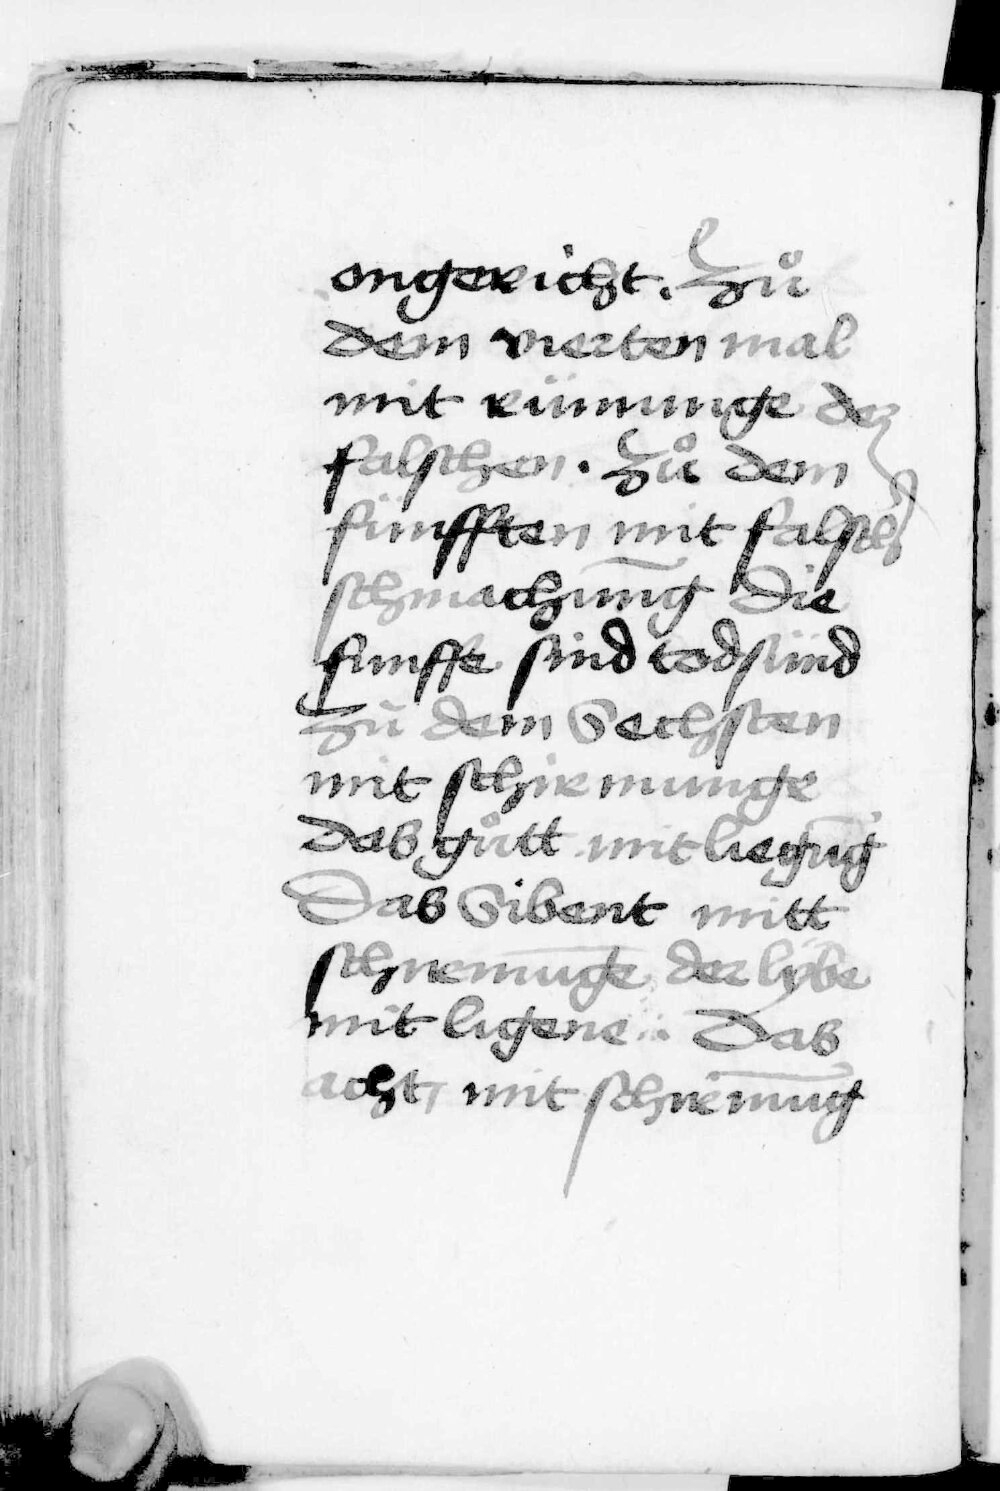 ongericht. Zů
dem vierten mal
mit rümunge der
falschen. Zů dem
fünfften mit falsch
schmachung̅ Die
funffte sind todsünd
zů dem Sechsten
mit schirmunge
das gůtt mit liegu̅g
Das Sibent mitt
schiremu̅ge der lybe
mit ligene. Das
acht, mit schiremu̅g